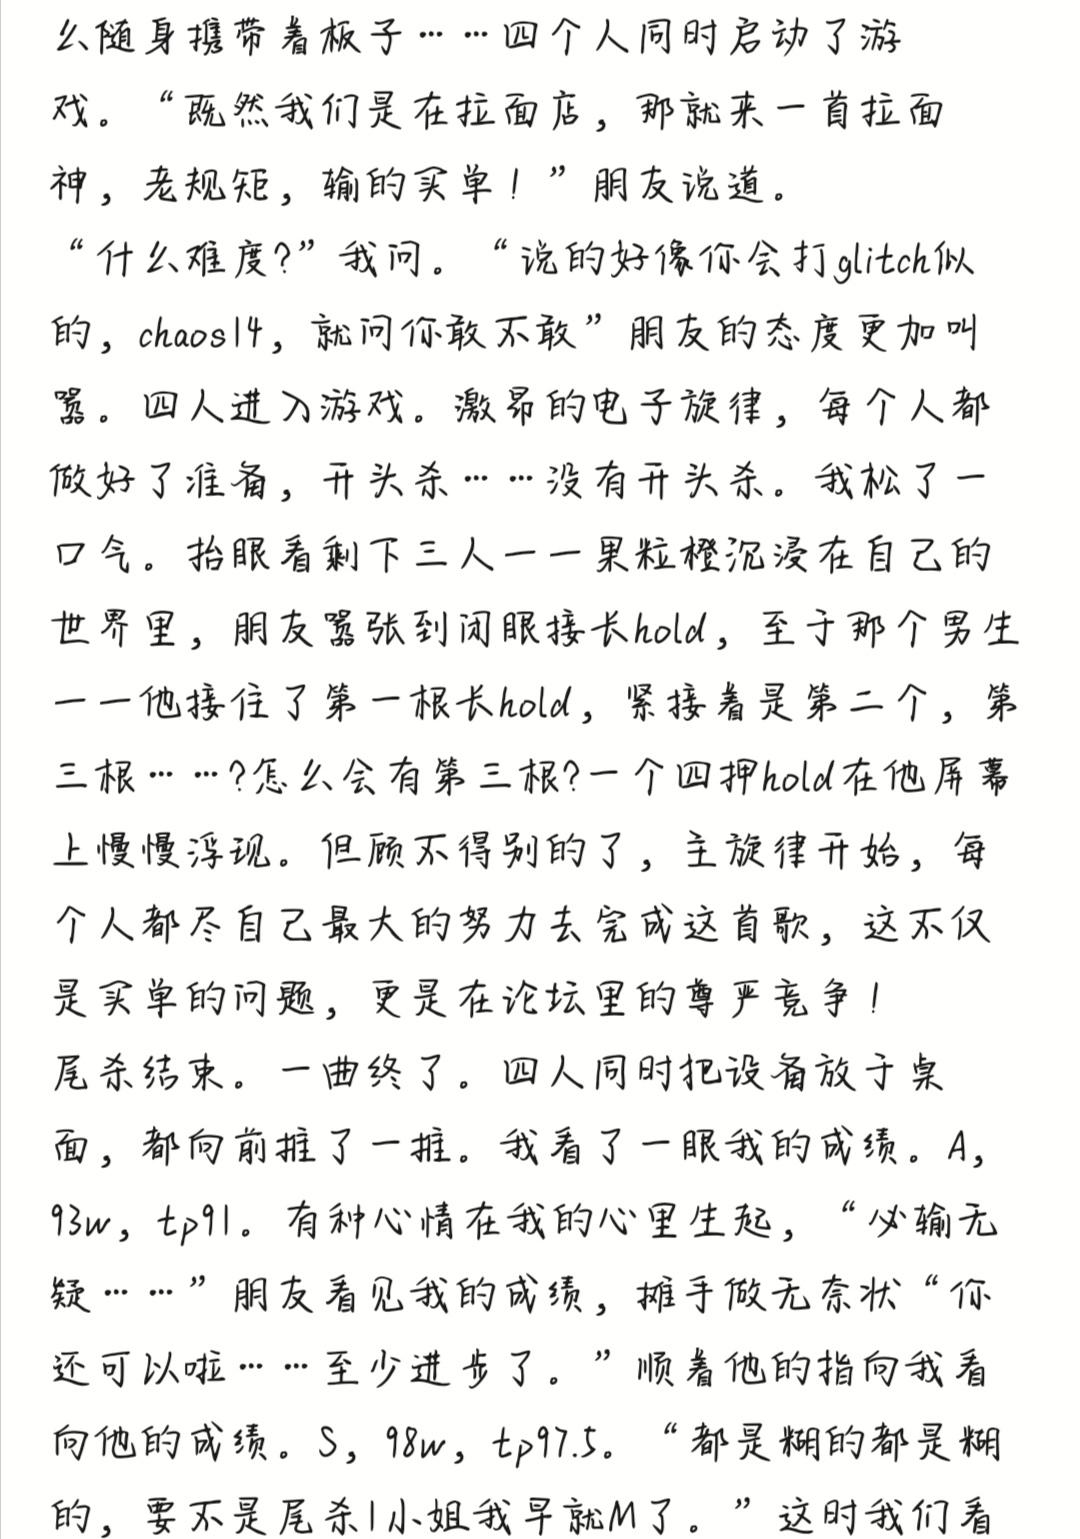 么随身携带着板子……四个人同时启动了游
戏。“既然我们是在拉面店，那就来一首拉面
神，老规矩，输的买单！”朋友说道。
“什么难度?”我问。“说的好像你会打glitch似
的，chaos14，就问你敢不敢”朋友的态度更加叫
嚣。四人进入游戏。激昂的电子旋律，每个人都
做好了准备，开头杀……没有开头杀。我松了一
口气。抬眼看剩下三人——果粒橙沉浸在自己的
世界里，朋友嚣张到闭眼接长hold，至于那个男生
——他接住了第一根长hold，紧接着是第二个，第
三根……?怎么会有第三根?一个四押hold在他屏幕
上慢慢浮现。但顾不得别的了，主旋律开始，每
个人都尽自己最大的努力去完成这首歌，这不仅
是买单的问题，更是在论坛里的尊严竞争！
尾杀结束。一曲终了。四人同时把设备放于桌
面，都向前推了一推。我看了一眼我的成绩。A，
93w，tp91。有种心情在我的心里生起，“必输无
疑……”朋友看见我的成绩，摊手做无奈状“你
还可以啦……至少进步了。”顺着他的指向我看
向他的成绩。S，98w，tp97.5。“都是糊的都是糊
的，要不是尾杀1小姐我早就M了。”这时我们看